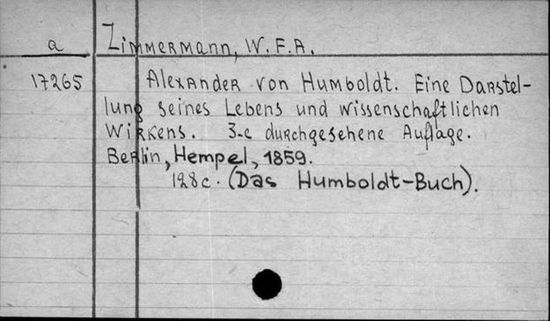 a Zimmermann, W.F.A.
17265 Alexander von Humboldt. Eine Darstel-
lung seines Lebens und wissenschaftlichen
Wirkens. 3.e durchgesehene Auflage.
Berlin, Hempel, 1859.
128c. (Das Humboldt-Buch).